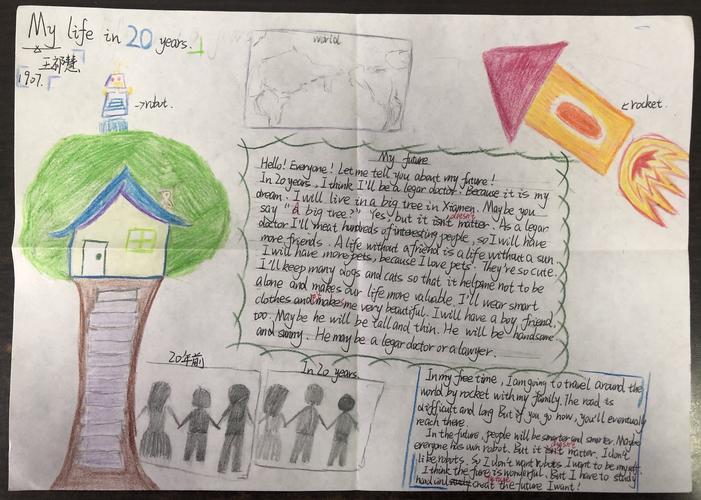 My life in 20 years.
王祁慧
1907.
→robot.
world
←rocket.
My future
Hello! Everyone! Let me tell you about my future!
In 20 years, I think I'll be a legar doctor. Because it is my
dream. I will live in a big tree in Xiamen. Maybe you
say "a big tree?" Yes, but it isn't doesn't matter. As a legar
doctor I'll meat hundreds of interesting people, so I will have
more friends. A life without a friend is a life without a sun.
I will have more pets, because I love pets. They're so cute.
I'll keep many dogs and cats so that it helpme not to be
alone and makes our life more valuable. I'll wear smart
clothes and makes me very beautiful. I will have a boy friend,
too. Maybe he will be tall and thin. He will be handsome
and sunny. He may be a legar doctor or a lawyer.
20年前
In 20 years.
In my free time, I am going to travel around the
world by rocket with my family. The road is
difficult and long But if you go now, you'll eventualy
reach there.
In the future, people will be smarter and smarter. Maybe
everyone has uwn robot. But it isn't doesn't matter. I don't
like robots. So I don't want robots. I want to be myself.
I think the fure is wonderful. But I have to study
hard and creat the future I want!